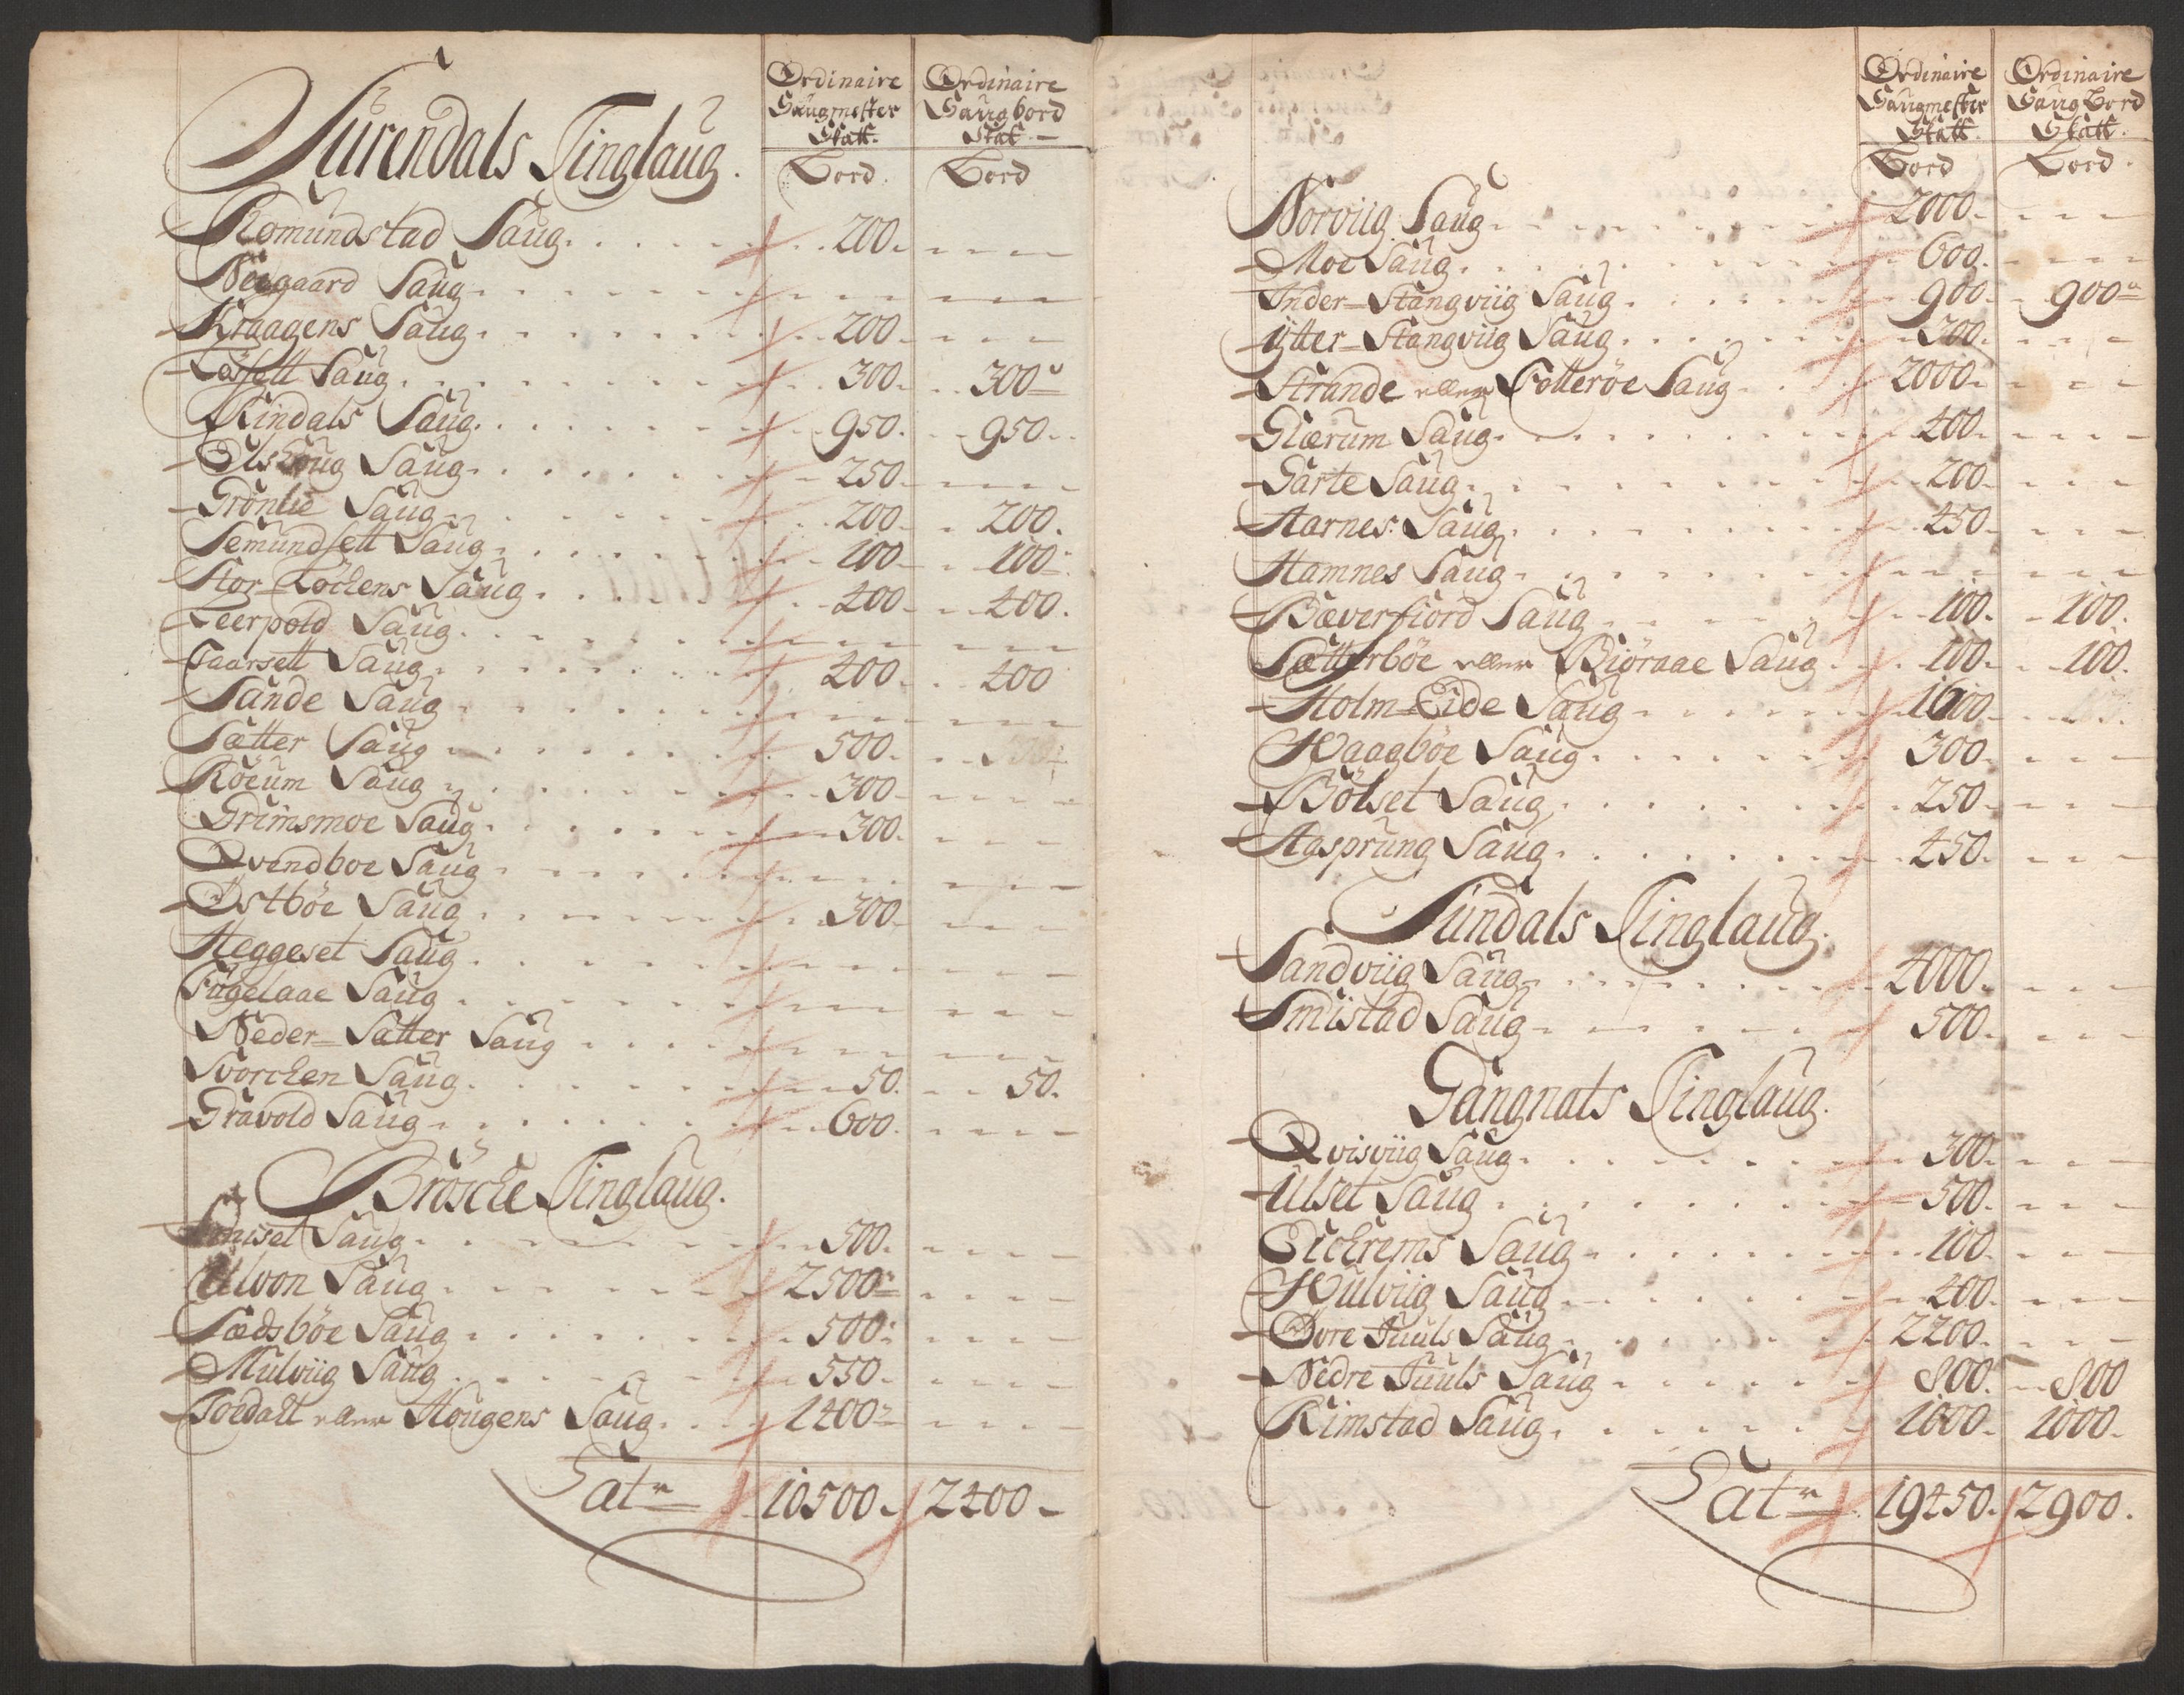 Ordinaire Saugmester Skatt.
Ordinaire Saugbord Skat.
Surendals Tinglaug.
Bord.
Bord
Romundstad Saug. 200.
Neegaard Saug
Kraagens Saug 200.
Løsett Saug 300. 300
Rindals Saug. 950. 950.
Saug 250.
Grønlie Saug 200. 200.
Semundsett Saug 100 100
Stor-Løchens Saug 400 400.
Leerpold Saug.
Taarsett Saug 400 400
Sande Saug
Sætter Saug 500.
Røeum Saug 300
Grimsmoe Saug 300.
Qvendboe Saug
Østbøe Saug 300
Heggeset Saug
Fugelaae Saug
Neder-Sætter Saug
Svorchen Saug. 50. 50.
Gravold Saug 600.
Brøsche Tinglaug.
Saug. 500.
Ulvon Saug 2500
Sædsbøe Saug 500
Mulviig Saug 550.
Toedalt eller Hougens Saug. 1400
Lat 10500 2400
Ordinaire Saugmester Skatt.
Ordinaire Saugbord Skatt.
Bord
Bord.
Norviig Saug 2000.
Moe Saug. 600.
Inder-Stangviig Saug 900. 900
Ytter-Stangviig Saug 300.
Strande eller Totterøe Saug 2000.
Glærum Saug. 400.
Garte Saug 200
Aarnes Saug 450.
Hamnes Saug
Bæverfiord Saug 100. 100.
Sætterbøe eller Biøraae Saug 100. 100.
Holm-Eide Saug 1600
Haagbøe Saug 300.
Bølset Saug 250
Aasprung Saug 450.
Sundals Tinglaug.
Sandviig Saug 4000.
Smistad Saug 500.
Gangnats Tinglaug.
Qvisviig Saug 300.
Ulset Saug 500.
Eichrems Saug 100.
Hulviig Saug 400.
Øvre Juuls Saug 2200.
Nedre Juuls Saug 800. 800
Rimstad Saug. 1000. 1000.
Lat 19450. 2900.